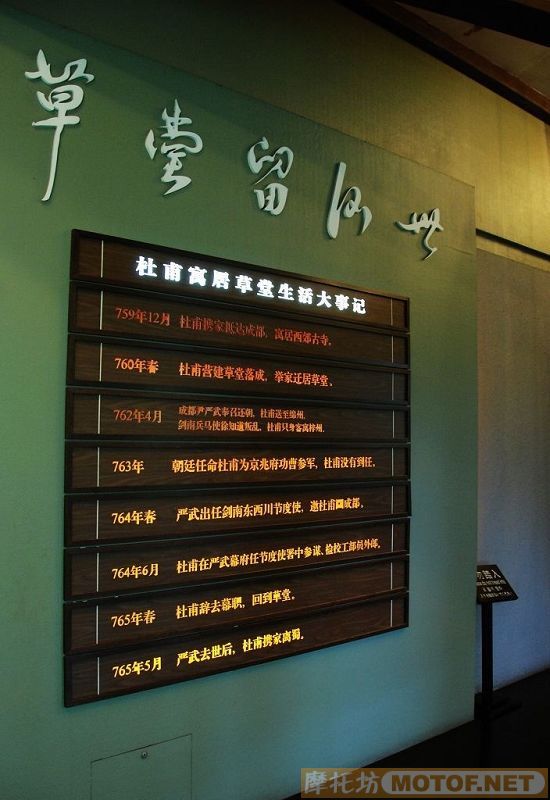 草堂留後世
杜甫寓居草堂生活大事记
759年12月 杜甫携家抵达成都，寓居西郊古寺。
760年春 杜甫营建草堂落成，举家迁居草堂。
762年4月 成都尹严武奉召还朝，杜甫送至绵州。
剑南兵马使徐知道叛乱，杜甫只身客寓梓州。
763年 朝廷任命杜甫为京兆府功曹参军，杜甫没有到任。
764年春 严武出任剑南东西川节度使，邀杜甫回成都。
764年6月 杜甫在严武幕府任节度使署中参谋、检校工部员外郎。
765年春 杜甫辞去幕职，回到草堂。
765年5月 严武去世后，杜甫携家离蜀。
勿踏入
摩托坊 MOTOF.NET